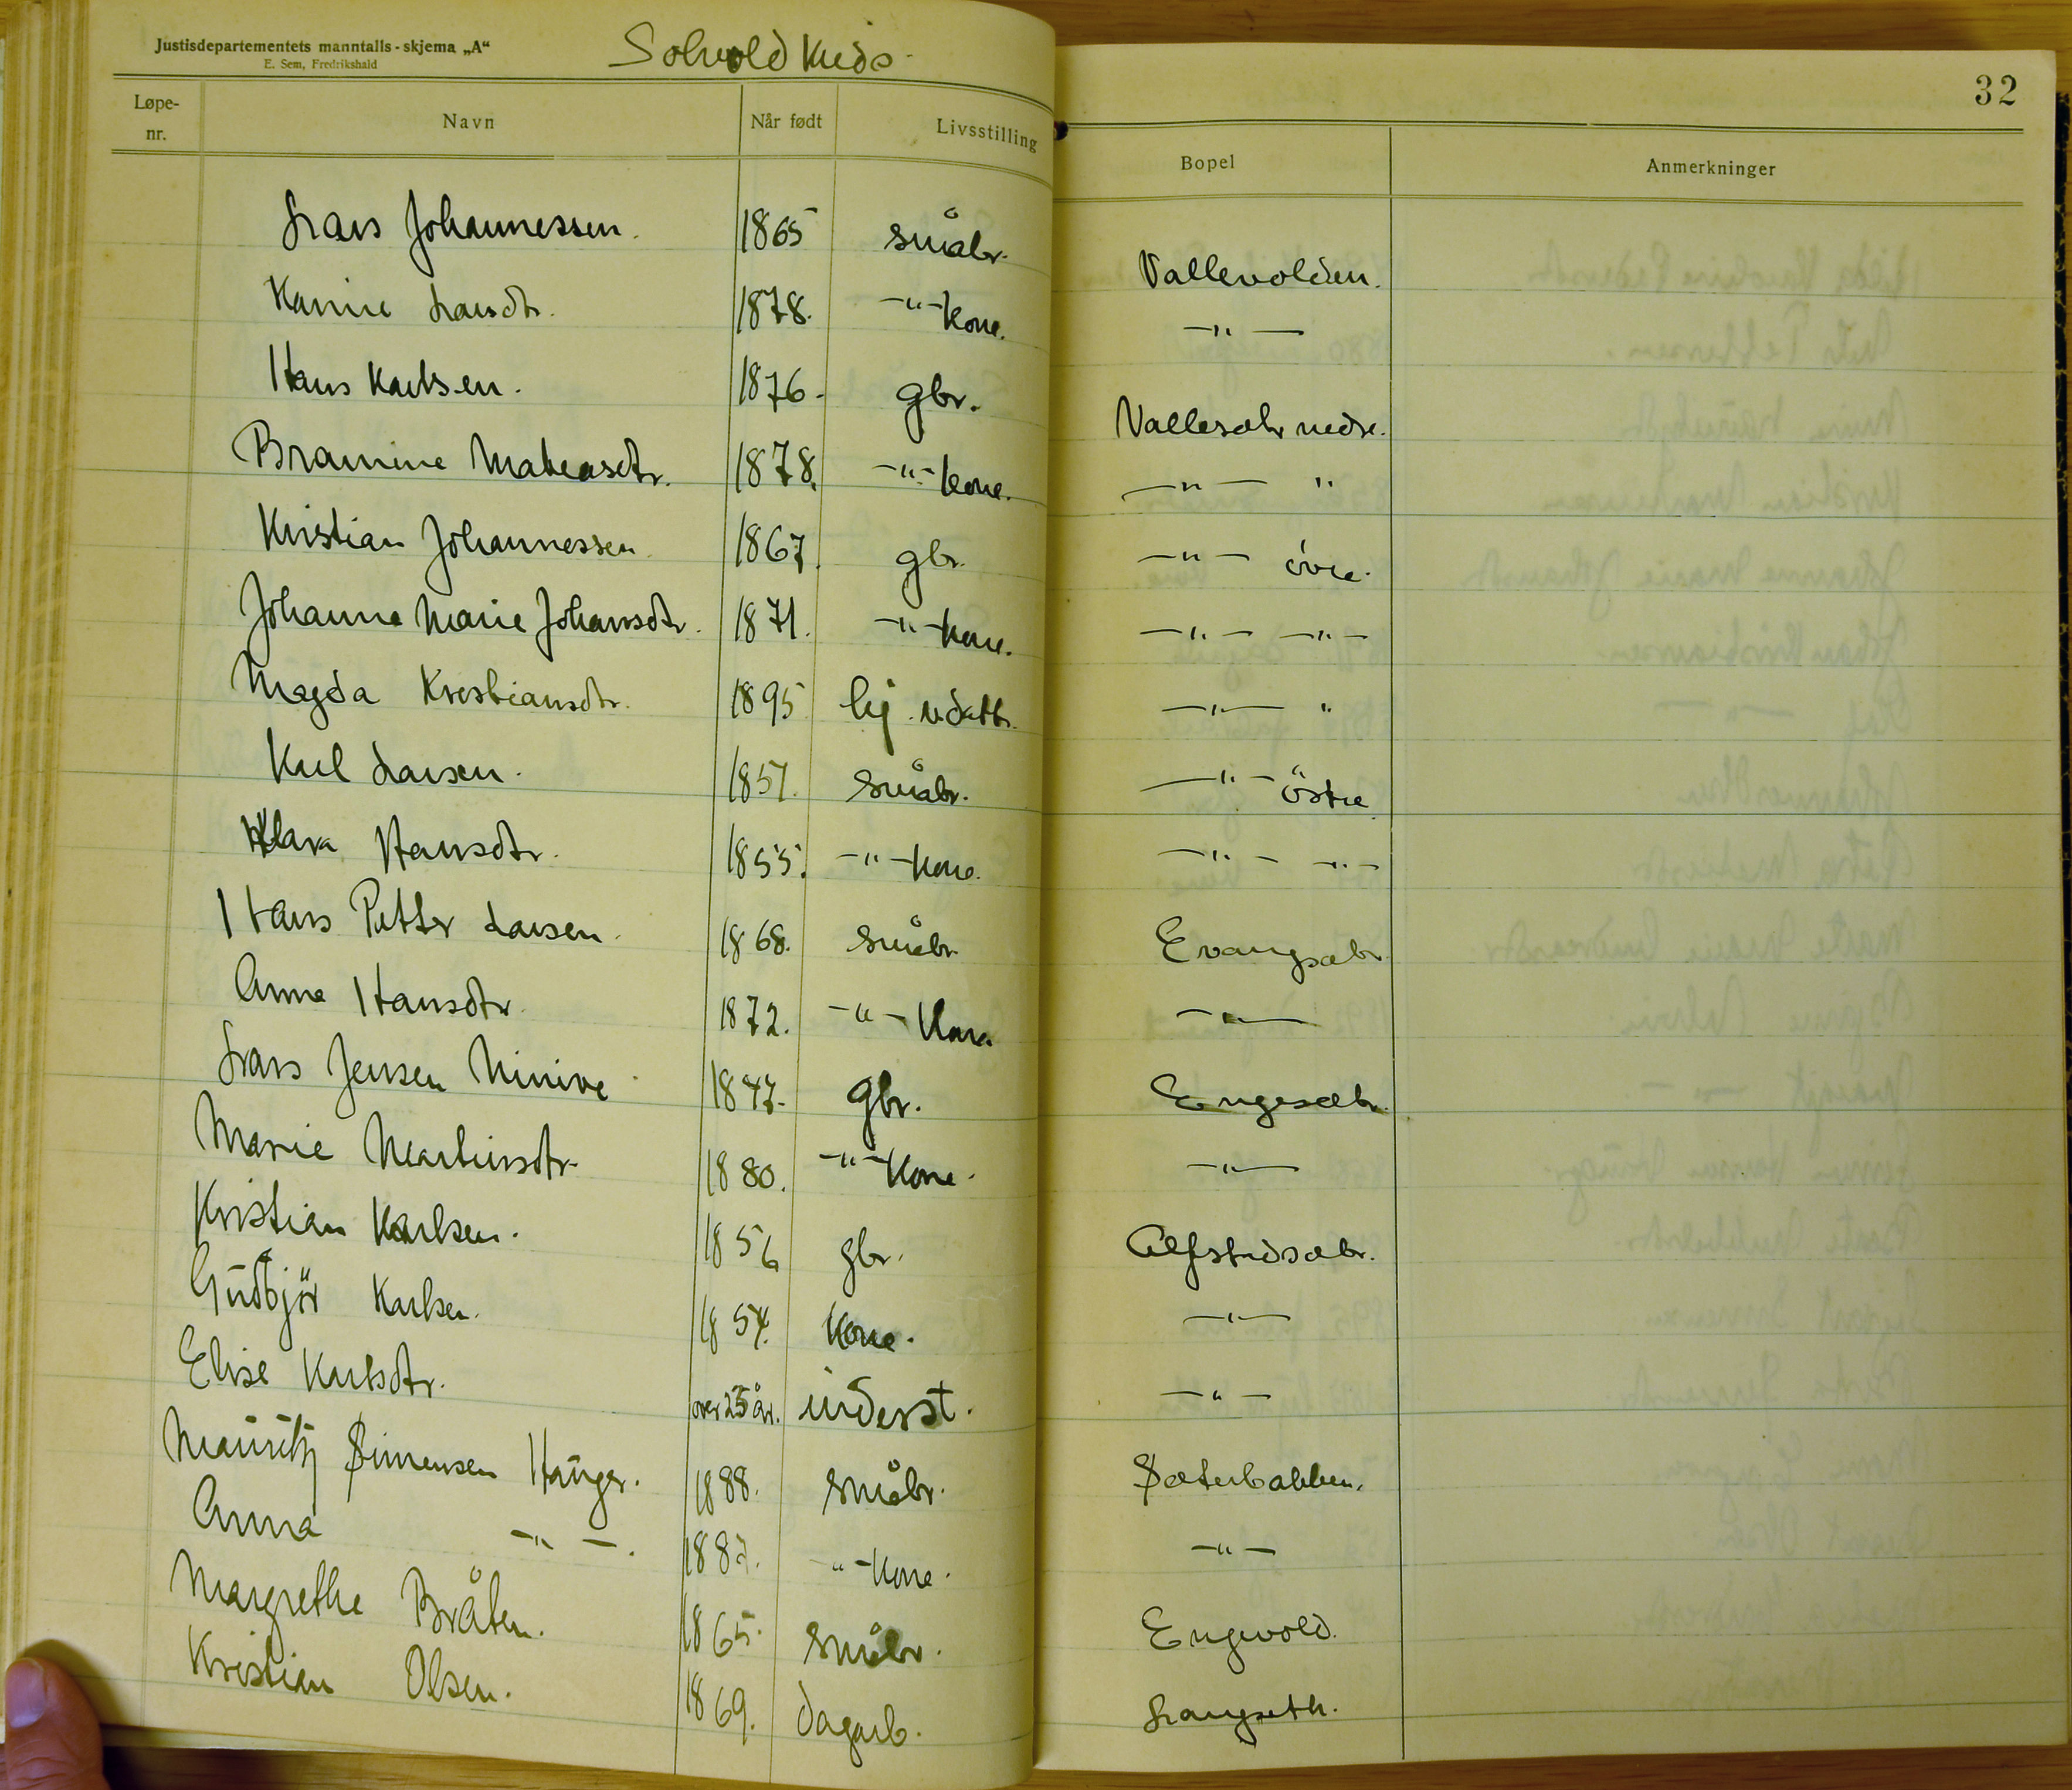 Justisdepartementets manntalls-skjema „A“
E. Sem, Fredrikshald
Solvold Kreds.
32
Løpe-nr. Navn Når født Livsstilling Bopel Anmerkninger
Lars Johannessen. 1865 småbr. Vallevolden.
Karine Larsdtr. 1878. -"- kone. -"-
Hans Karlsen. 1876. gbr. Vallesætr nedre.
Bramine Mateasdtr. 1878. -"- kone. -"- "
Kristian Johannessen 1867. gbr. -"- övre.
Johanna Marie Johansdtr. 1871. -"- kone. -"- -"-
Magda Kristiansdtr. 1895 hj. v. dattr. -"- "
Karl Larsen. 1857. småbr. -"- östre
Klara Hansdtr. 1855. -"- kone. -"- -"-
Hans Petter Larsen. 1868. småbr Evangsætr
Anne Hansdtr. 1872. -"- Kone -"-
Lars Jensen Ninive 1847. gbr. Engesætr.
Marie Martinsdtr. 1880. -"- Kone. -"-
Kristian Karlsen. 1856 gbr. Alfstadsætr.
Gudbjör Karlsen. 1854. Kone. -"-
Elise Karlsdtr. over 25 år. inderst. -"-
Mauritz Simensen Hauger. 1888. småbr. Sæterbakken.
Anna -"-. 1887. -"- Kone. -"-
Margrethe Bråten. 1865. småbr. Engvold.
Kristian Olsen. 1869. dagarb. Langseth.